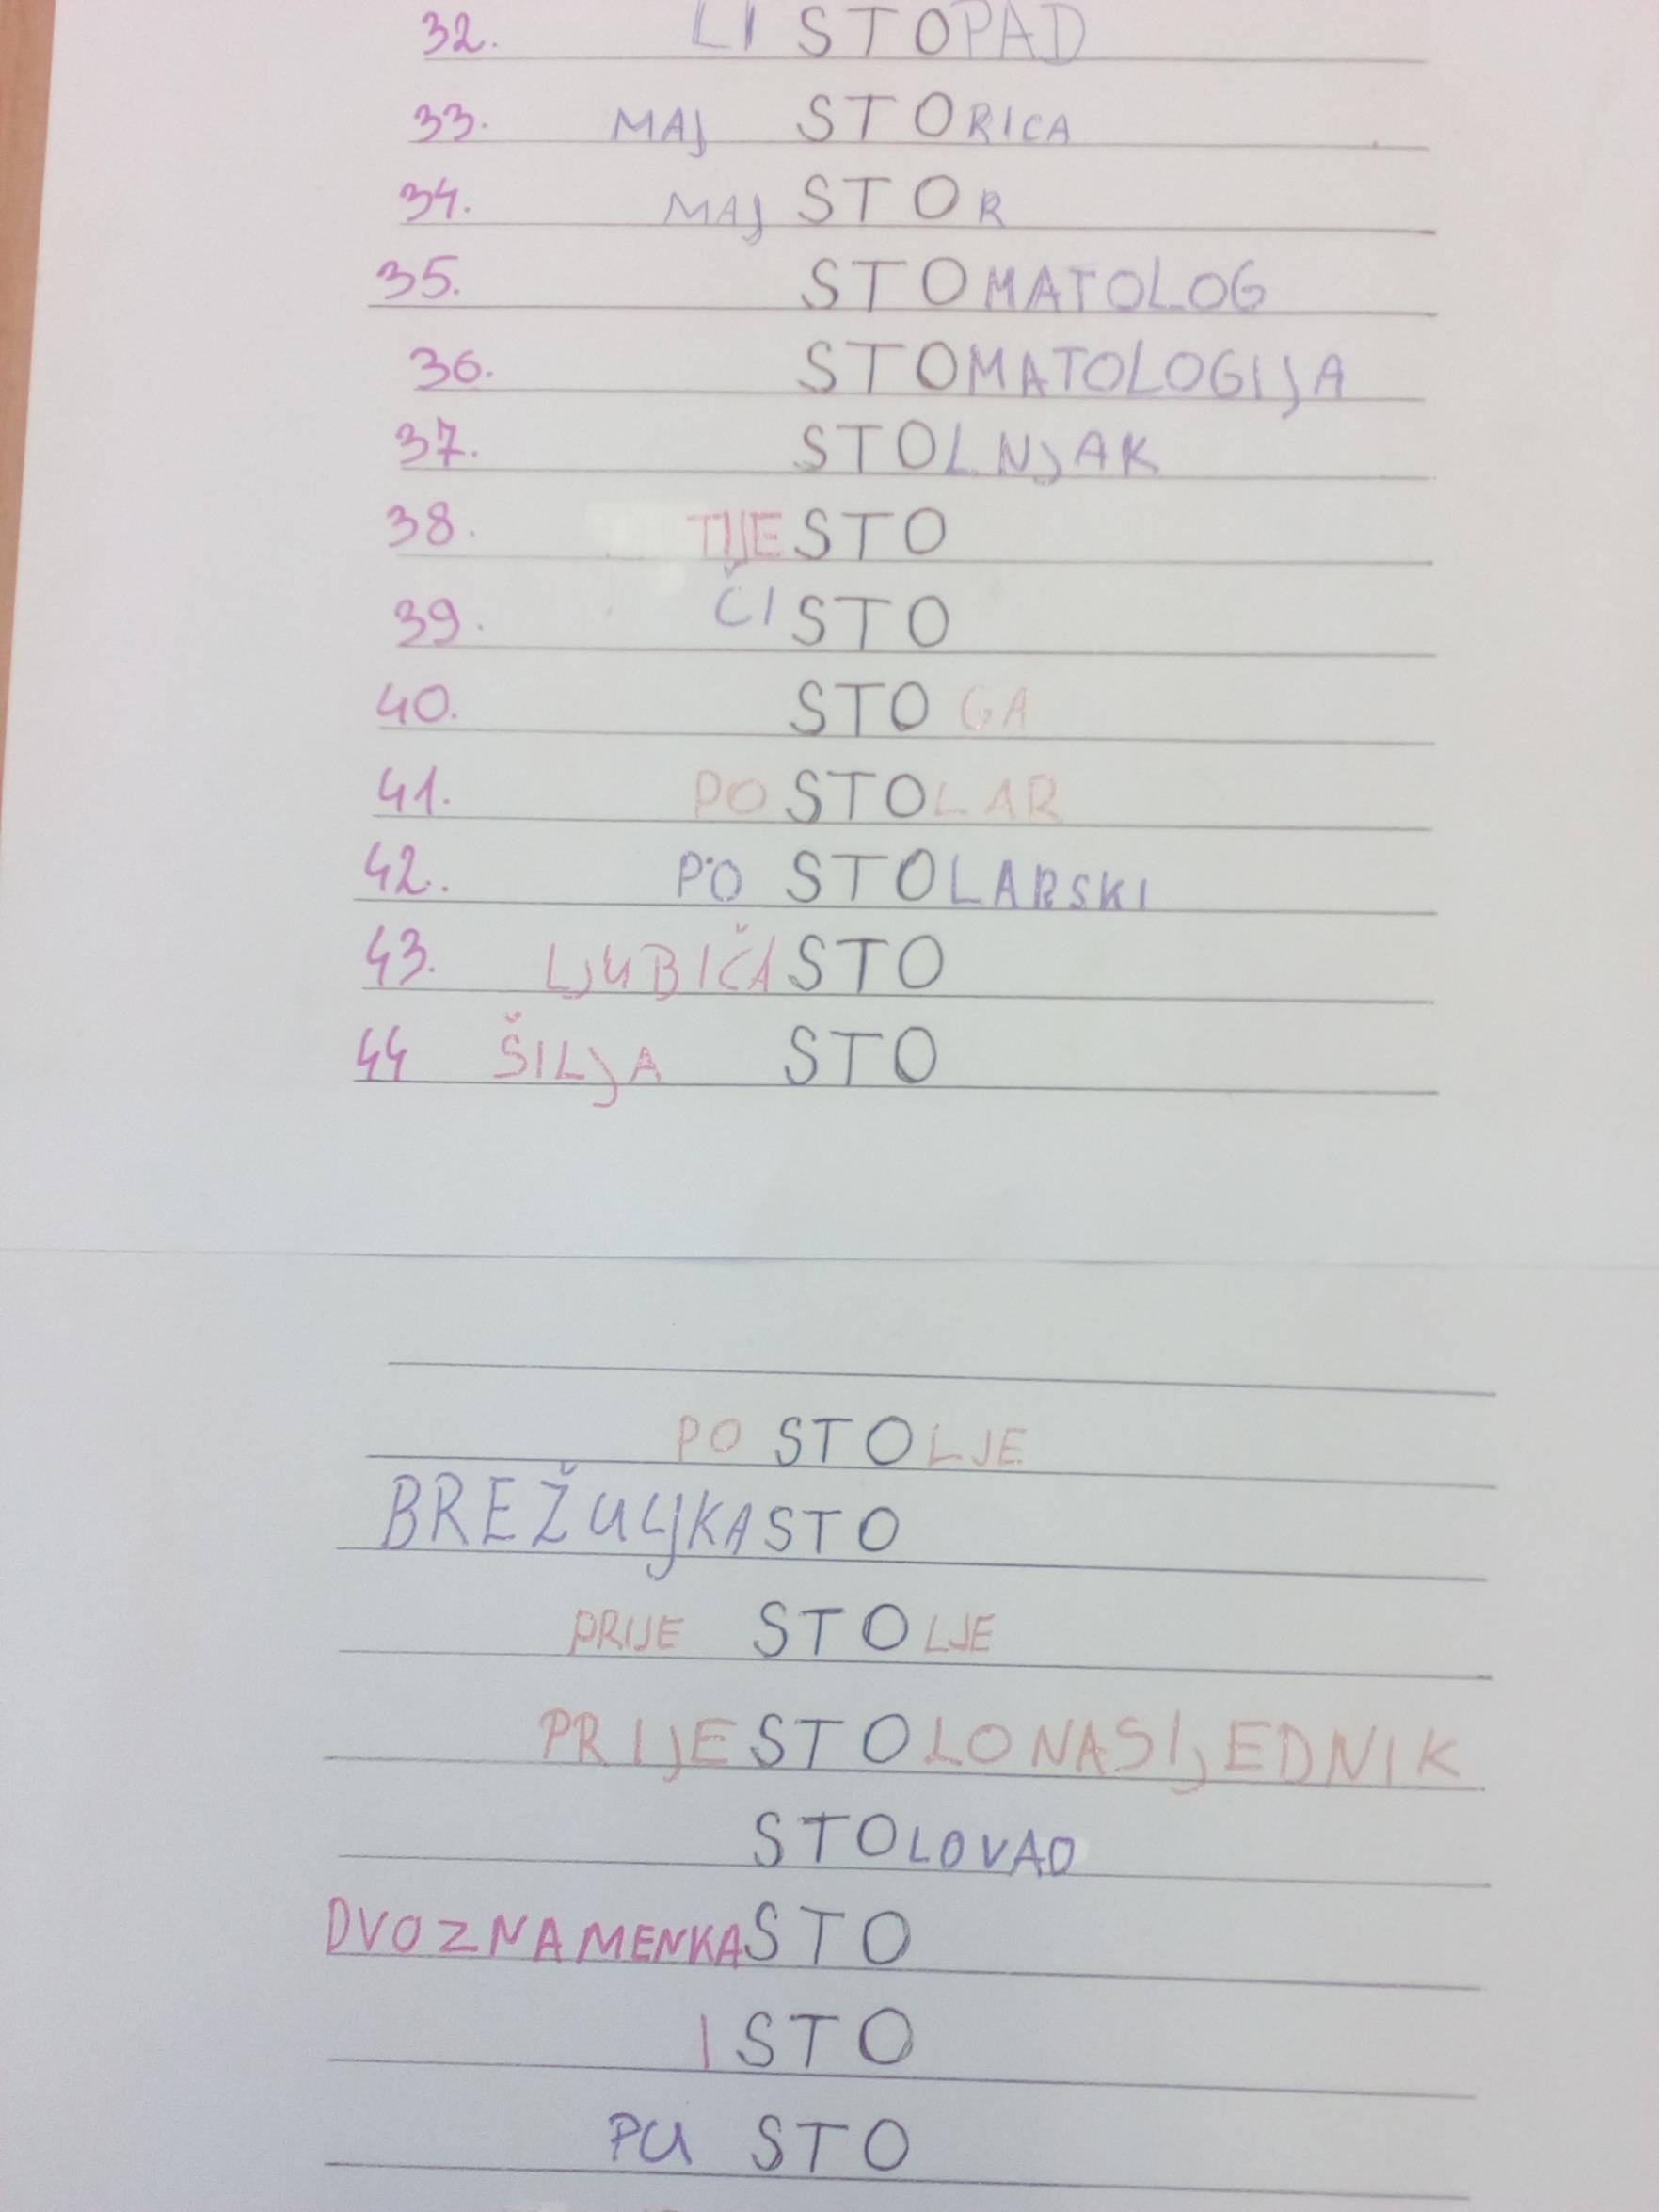 32. LISTOPAD
33. MAJSTORICA
34. MAJSTOR
35. STOMATOLOG
36. STOMATOLOGIJA
37. STOLNJAK
38. TIJESTO
39. ČISTO
40. STOGA
41. POSTOLAR
42. POSTOLARSKI
43. LJUBIČASTO
44 ŠILJASTO
POSTOLJE
BREŽULJKASTO
PRIJESTOLJE
PRIJESTOLONASLJEDNIK
STOLOVAO
DVOZNAMENKASTO
ISTO
PUSTO